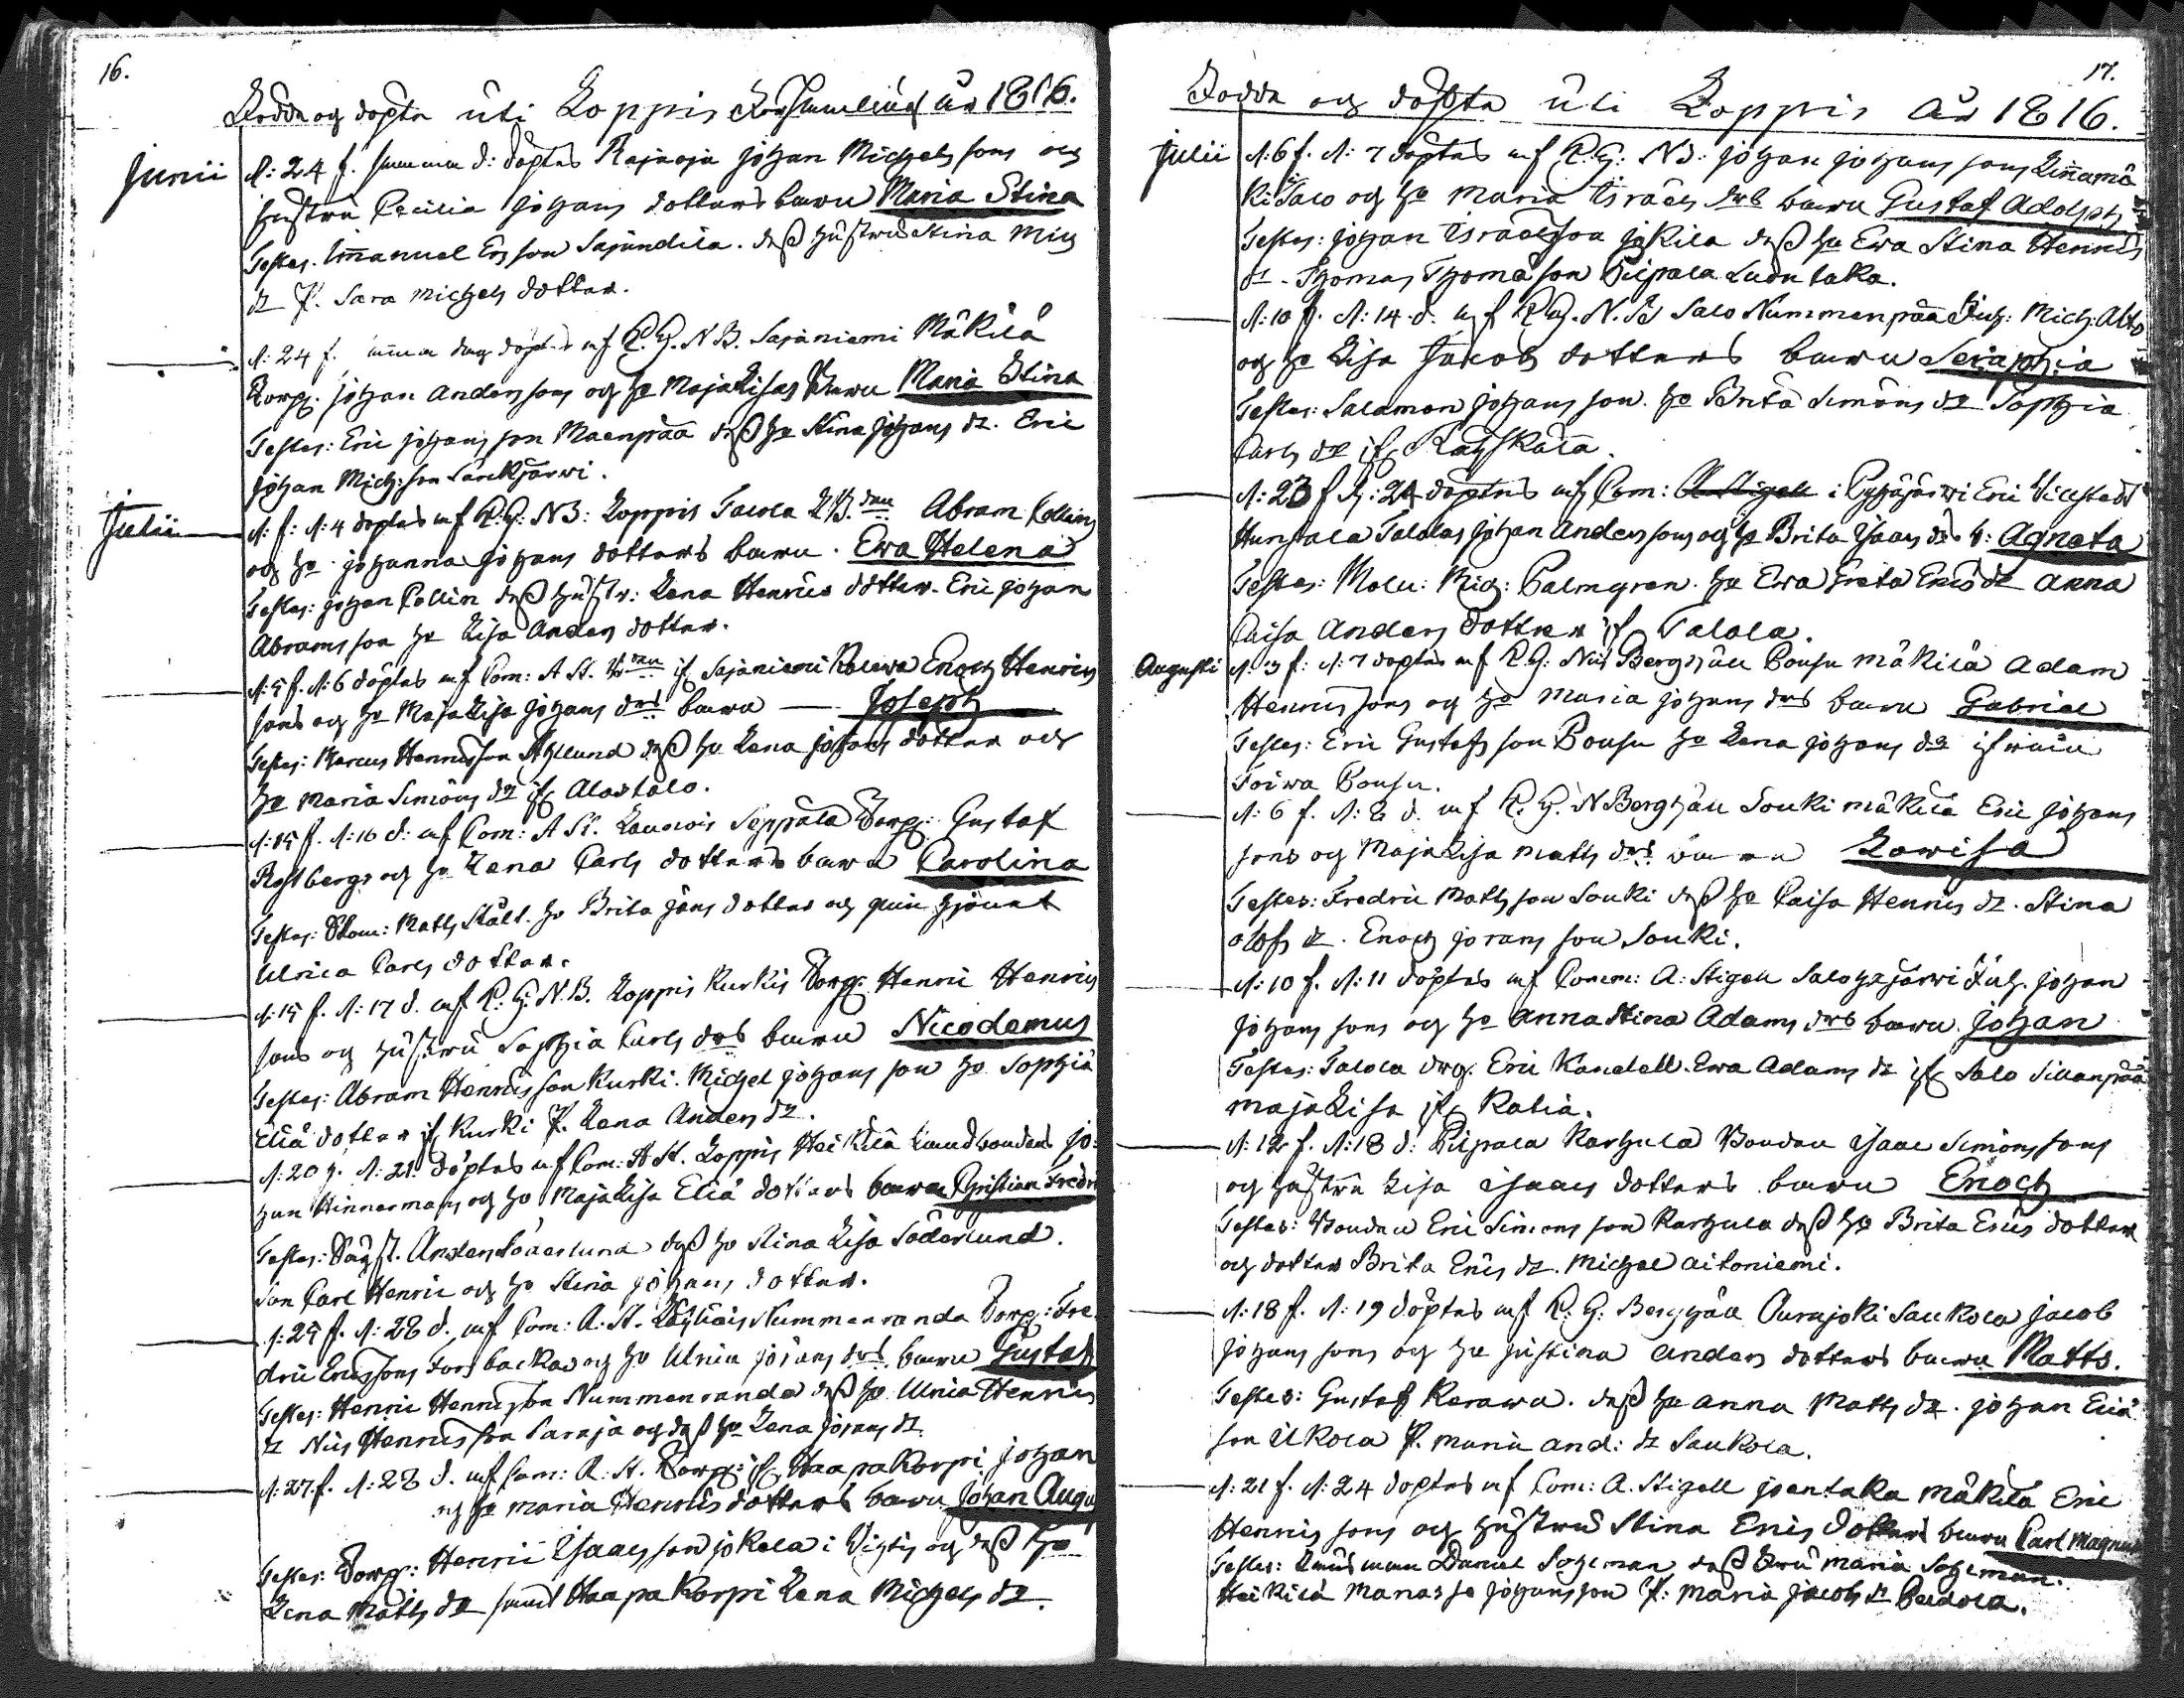 16.
Födde och döpte uti Loppis Församling år 1816.
Junii
d: 24 f. samma d: döptes Rajaoja Johan Michels sons och
hustru Cecilia Johans dotters barn Maria Stina
Testes. Immanuel Ers son Sajundila. dess hustru Stina Mich
dr P. Sara Michels dotter.
d: 24 f. samma dag döptes af P. G. N B. Sajaniemi Mäkilä
Torp. Johan Anderssons och ho Maja Lisas barn Maria Stina
Testes: Eric Johans son Maenpää dess ho Stina Johans dr. Eric
Johan Mich: son Sarckjärwi.
Julii
d: f: d: 4 döptes af P. G: N B: Loppis Talola Abram Collins
och ho Johanna Johans dotters barn. Ewa Helena
Testes: Johan Collin dess hustr: Lena Henrics dotter. Eric Johan
Abrams son ho Lisa Anders dotter.
d: 5 f. d: 6 döptes af Com: A St. ifr Sajaniemi Enoch Henrics
sons och ho Maja Lisa Johans drs barn — Joseph
Testes: Marcus Henricsson Hyllund dess ho Lena Johans dotter och
ho Maria Simons dr ifr Alastalo.
d: 15 f. d: 16 d: af Com: A St. Seppälä Torp: Gustaf
Rostbergs och ho Lena Carls dotters barn Carolina
Testes: Skom: Matts Stålt. ho Brita Jöns dotter och
Ulrica Carls dotter.
d: 15 f. d: 17 d. af P. G. N. B. Loppis Kurkis Torp. Henric Henrics
sons och hustru Sophia Carls drs barn Nicodemus
Testes: Abram Henrics son Kurki. Michel Johans son ho Sophia
Eliä dotter ifr Kurki P. Lena Anders dr.
d: 20 f. d: 21. döptes af Com: A St. Loppis Heikilä Landbonden Jo:
han Hinnermans och ho Maja Lisa Eliä dotters barn Christian Fredri
Testes: Anders Söderlund dess ho Stina Lisa Söderlund.
Son Carl Henric och ho Stina Johans dotter.
d: 25 f. d: 28 d. af Com: A. St. Nummenranda Torp: Fre
dric Ericssons Forsbacka och ho Ulrica Jörans drs barn Gustaf
Testes: Henric Henricsson Nummenranda dess ho Ulrica Henrics
dr Nils Henrics son Saraja och dess ho Lena Jörans dr.
d: 27 f. d: 28 d. af Com: A. St. Torp: ifr Haapakorpi Johan
och ho Maria Henrics dotters barn Johan Augu
Testes: Torp: Henric Isaacs son Jokela i Wichtis och dess ho
Lena Matts dr samt Haapakorpi Lena Michels dr.
17.
Födda och döpte uti Loppis år 1816.
Julii
d: 6 f. d: 7 döptes af P. G: N B: Johan Johans sons Linnamä
ki Salo och ho Maria Israels drs barn Gustaf Adolph
Testes: Johan Israelsson Jokila dess ho Ewa Stina Henrics
dr. Thomas Thomasson Pilpala Ludulaka.
d: 10 f. d: 14 d. af P G. N. B Salo Nummenpää Inh: Mich: Abr
och ho Lisa Jacobs dotters barn Seraphia
Testes: Salamon Johans son. ho Brita Simons dr Sophia
Carls dr ifr Räyskälä.
d: 23 f d: 24 döptes af Com: A Stigell i Pyhäjärwi Eric Wilstadt
Hunsala Talolas Johan Anderssons och ho Brita Isaacs drs b: Agneta
Testes: Molu: Mich: Palmgren. ho Ewa Greta Erics dr Anna
Caisa Anders dotter ifr Talola.
Augusti
d: 3 f: d: 7 döptes af P. G: Nils Bergsjäll Pousu Mäkilä Adam
Henricssons och ho Maria Johans drs barn Gabriel
Testes: Eric Gustafs son Pousu ho Lena Johans dr
Toiwa Pousu.
d: 6 f. d: 8 d. af P. G. N Bergsjäll Souki Mäkilä Eric Johans
sons och Maja Lisa Matts drs barn Lowisa
Testes: Fredric Matts son Souki dess ho Caisa Henrics dr. Stina
Olofs dr. Enoch Jorans son Souki.
d: 10 f. d: 11 döptes af Comm: A: Stigell Salo Inh. Johan
Johans sons och ho Anna Stina Adams drs barn. Johan
Testes: Talola drg. Eric Kandell. Ewa Adams dr ifr Salo Sillanpää
Maja Lisa ifr Katia.
d: 12 f. d: 18 d: Pilpala Karhula Bonden Isaac Simons sons
och hustru Lisa Isaacs dotters barn Enoch
Testes: Bonden Eric Simons son Karhula dess ho Brita Erics dotter
och dotter Brita Erics dr. Michel Aitoniemi.
d: 18 f. d: 19 döptes af P. G. Bergsjäll Ourajoki Saukola Jacob
Johans sons och ho Justina Anders dotters barn Matts.
Testes: Gustaf Kerawa. dess ho Anna Matts dr. Johan Eliä
son Ukola P. Maria And: dr Saukola.
d: 21 f. d: 24 döptes af Com: A. Stigell Joentaka Mäkilä Eric
Henrics sons och hustru Stina Erics dotters barn Carl Magnus
Testes: Daniel Sohlman dess Fru Maria Sohlman.
Heikilä Manasse Johansson P: Maria Jacobs dr Paldola.